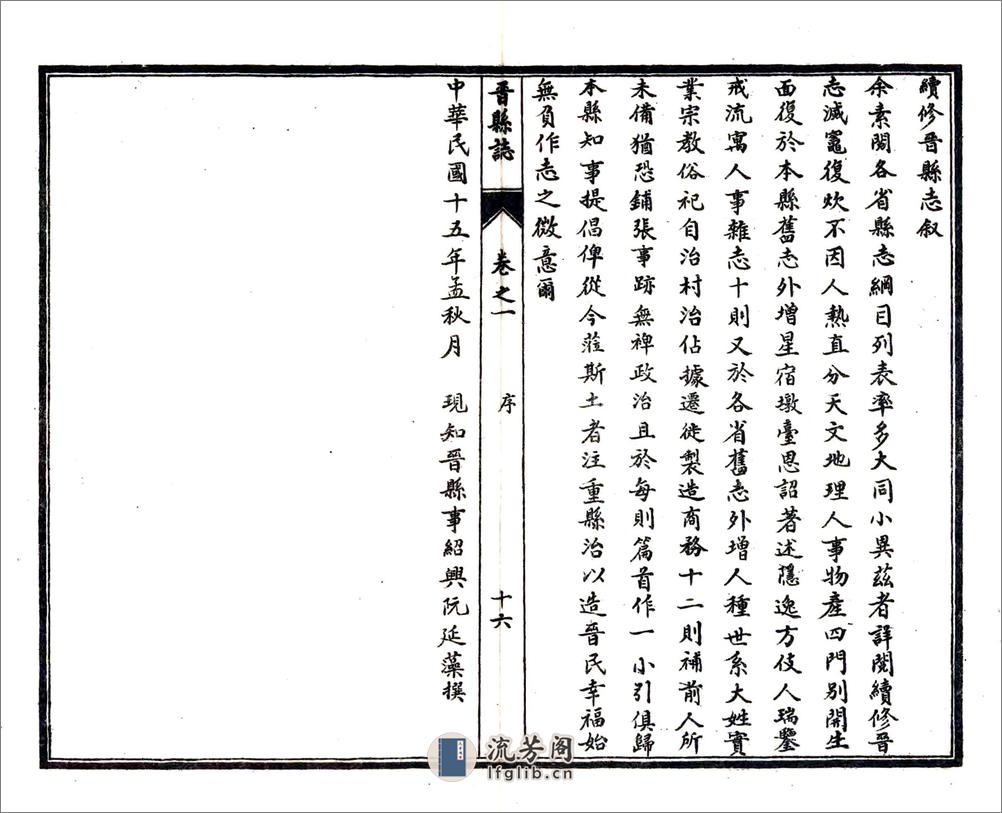 續修晉縣志叙
余素閱各省縣志綱目列表率多大同小異茲者詳閱續修晉
志滅竈復炊不因人熱直分天文地理人事物產四門別開生
面復於本縣舊志外增星宿墩臺恩詔著述隱逸方伎人瑞鑒
戒流寓人事雜志十則又於各省舊志外增人種世系大姓實
業宗教俗祀自治村治佔據遷徙製造商務十二則補前人所
未備猶恐鋪張事跡無裨政治且於每則篇首作一小引俱歸
本縣知事提倡俾從今蒞斯土者注重縣治以造晉民幸福始
無負作志之微意爾
晉縣誌 卷之一 序 十六
中華民國十五年孟秋月 現知晉縣事紹興阮延藻撰
流芳阁
lfglib.cn